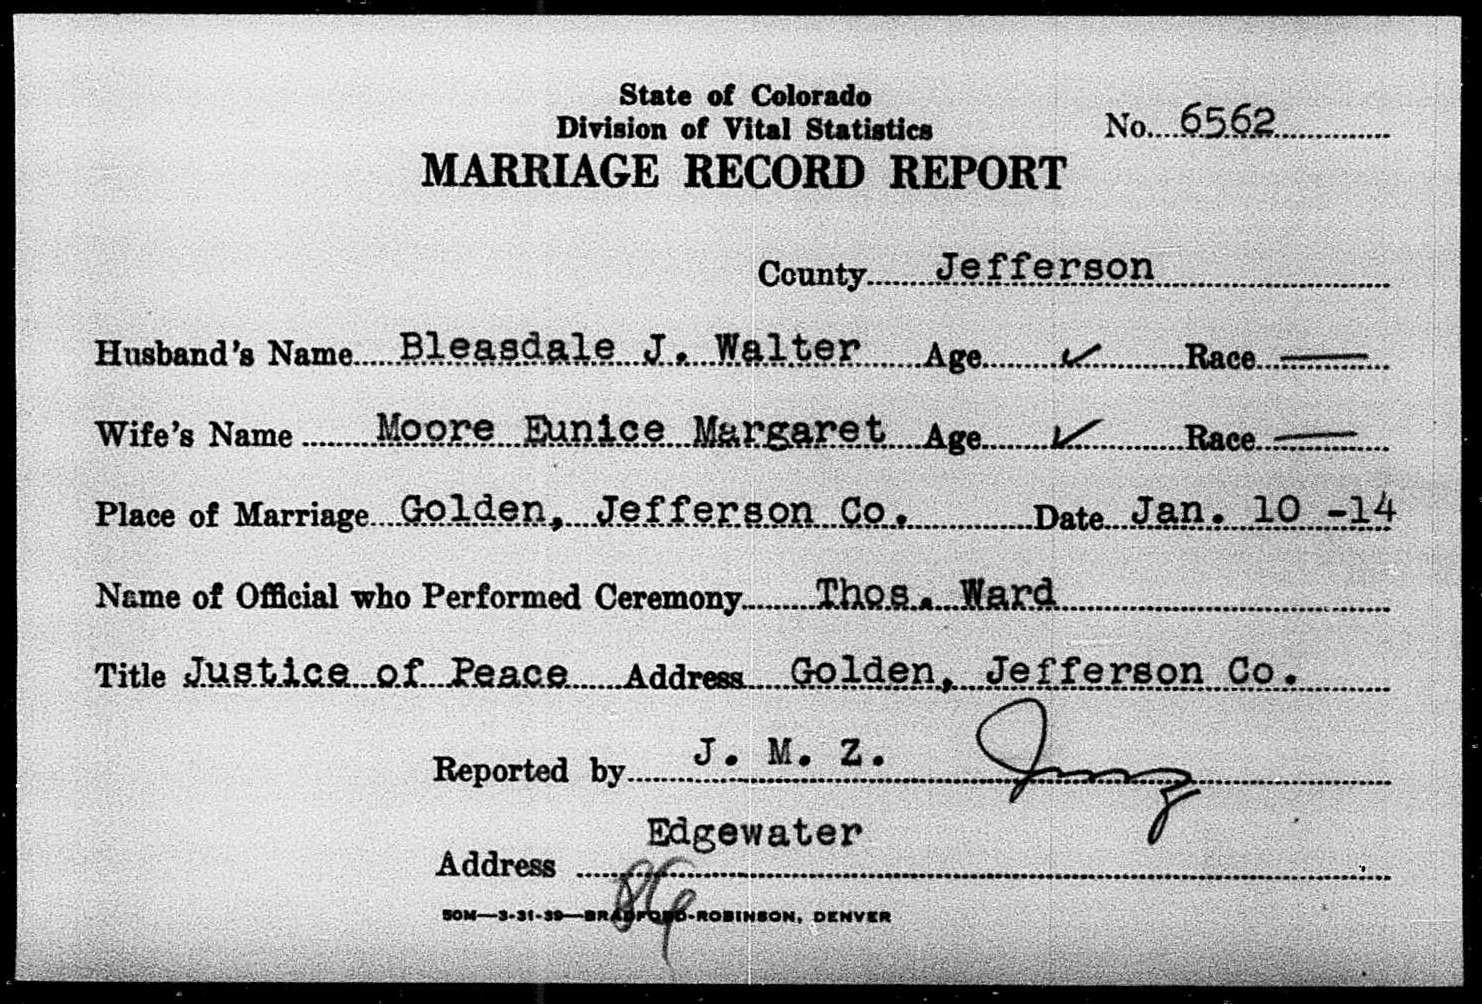 State of Colorado
Division of Vital Statistics
No. 6562
MARRIAGE RECORD REPORT
County Jefferson
Husband's Name Bleasdale J. Walter Age ✓ Race —
Wife's Name Moore Eunice Margaret Age ✓ Race —
Place of Marriage Golden, Jefferson Co. Date Jan. 10 -14
Name of Official who Performed Ceremony Thos. Ward
Title Justice of Peace Address Golden, Jefferson Co.
Reported by J. M. Z.
Edgewater
Address
50M—3-31-39—BRADFORD-ROBINSON, DENVER